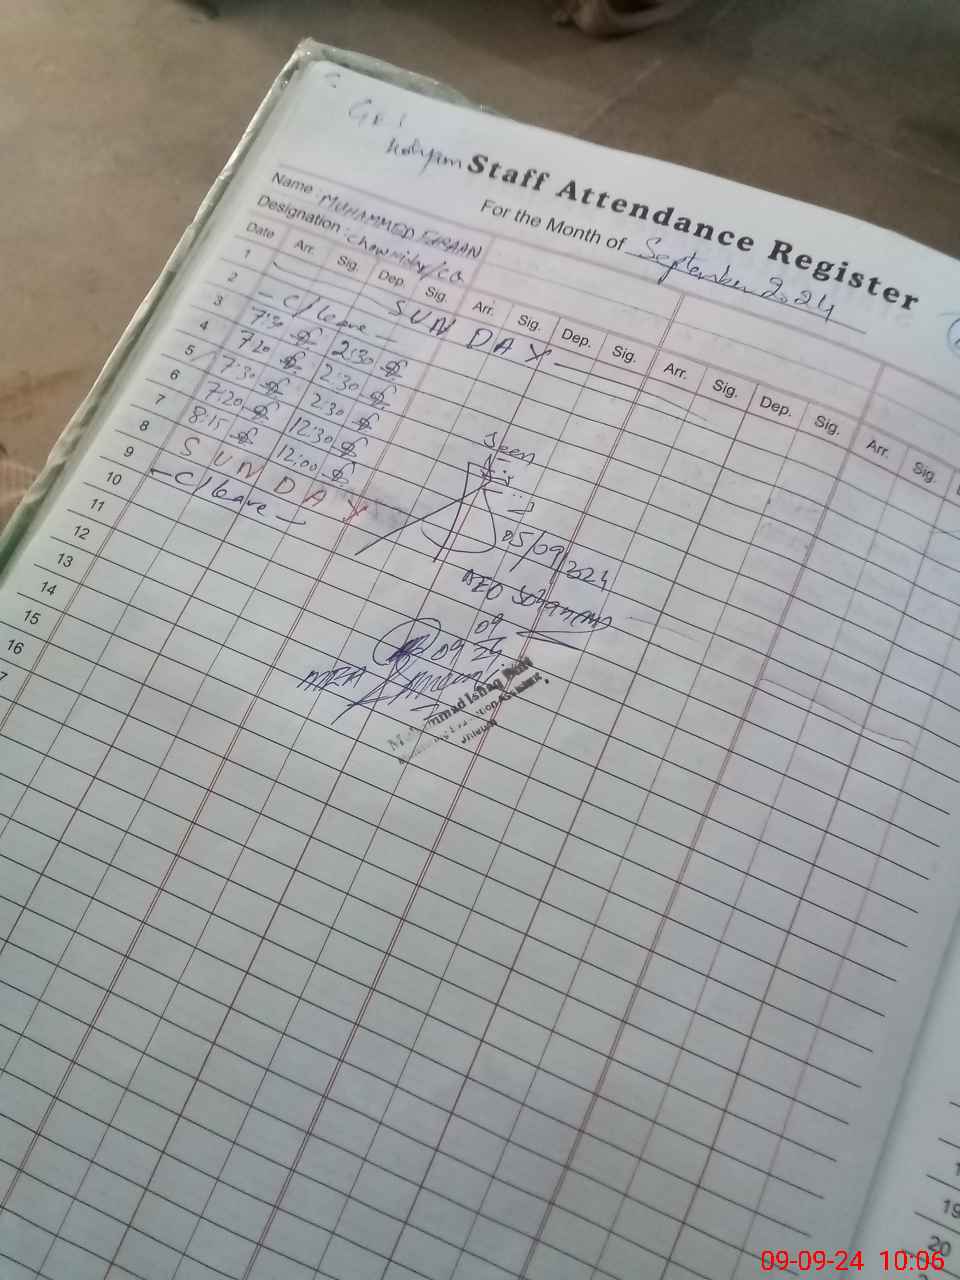 Staff Attendance Register
For the Month of September 2024
Name : MUHAMMED
Designation :
Date Arr. Sig. Dep. Sig. Arr. Sig. Dep. Sig. Arr. Sig. Dep. Sig. Arr. Sig.
1 SUNDAY
2 - C/leave -
3 7:30 2:30
4 7:20 2:30
5 7:30 2:30
6 7:20 12:30
7 8:15 12:00
8 SUNDAY
9 - C/leave -
10
11
12
13
14
15
16
Seen
05/09/2024
AEO
09
09
24
MEA
19
20
09-09-24 10:06